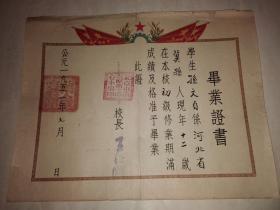 畢業證書
學生孫文自係河北省
冀縣人現年十二歲
在本校初級修業期滿
成績及格准予畢業
此證
校長
公元一九五一年七月 日